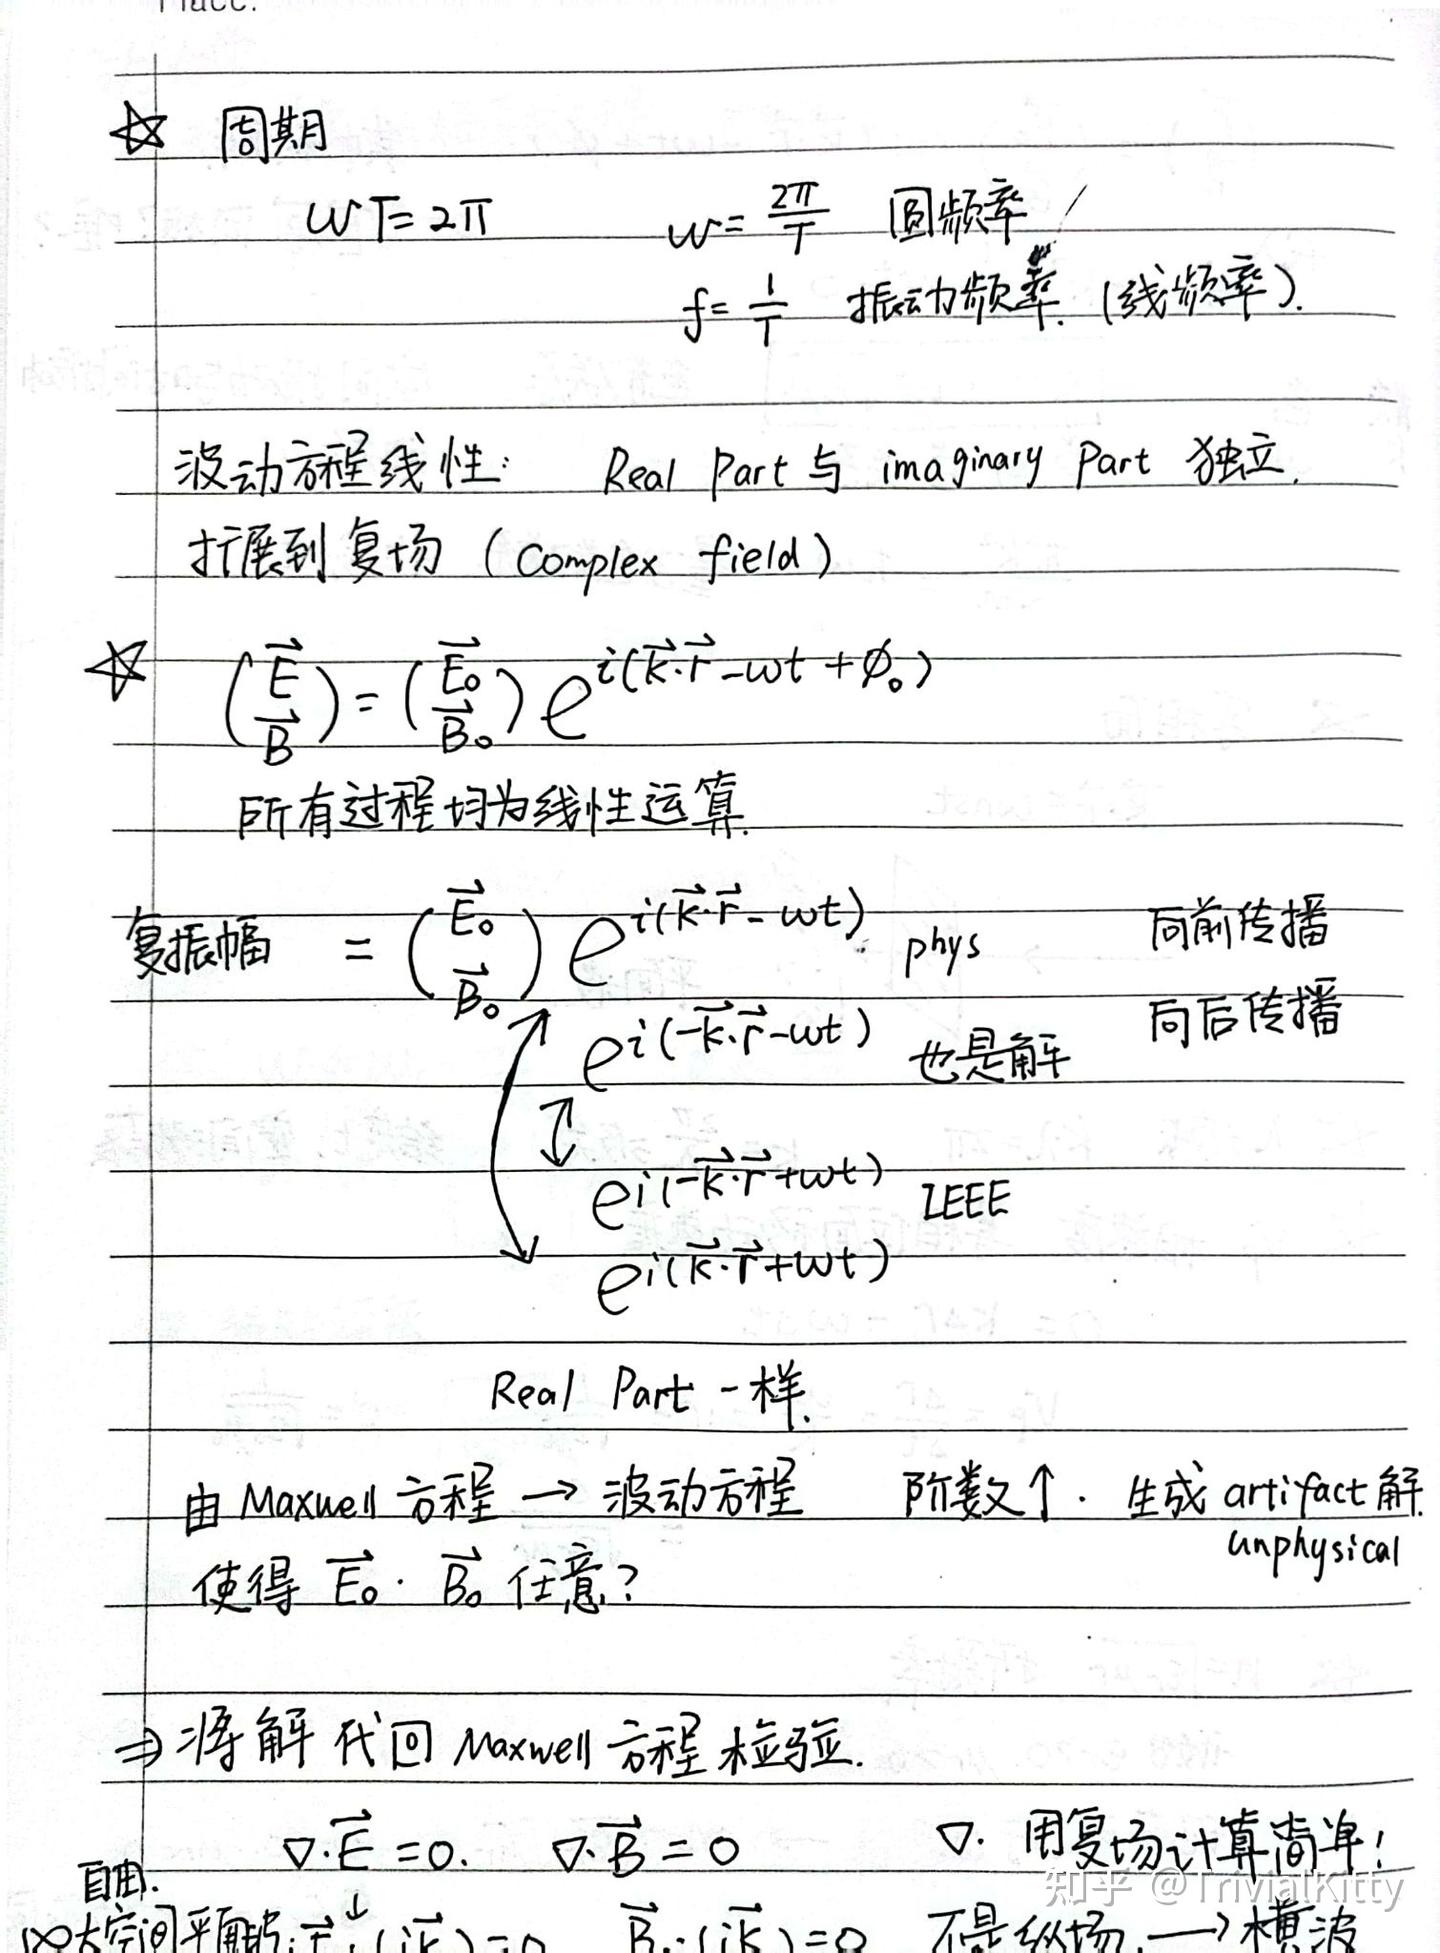 ☆ 周期
ωT=2π ω=2π/T 圆频率
f=1/T 振动频率.(线频率).
波动方程线性: Real Part 与 imaginary Part 独立.
扩展到复场 (Complex field)
☆ (E⃗ B⃗) = (E⃗₀ B⃗₀) e^{i(k⃗·r⃗-ωt+ϕ₀)}
所有过程均为线性运算.
复振幅 = (E⃗₀ B⃗₀) e^{i(k⃗·r⃗-ωt)} phys 向前传播
e^{i(-k⃗·r⃗-ωt)} 也是解 向后传播
e^{i(-k⃗·r⃗+ωt)} IEEE
e^{i(k⃗·r⃗+ωt)}
Real Part 一样.
由 Maxwell 方程 → 波动方程 阶数↑. 生成 artifact 解.
unphysical
使得 E⃗₀· B⃗₀ 任意?
⇒ 将解代回 Maxwell 方程检验.
∇·E⃗=0. ∇·B⃗=0 ∇· 用复场计算简单!
自由.
知乎 @TrivialKitty
∞大空间平面波: (ik⃗)=0 B⃗·(ik⃗)=0 不是纵场. → 横波